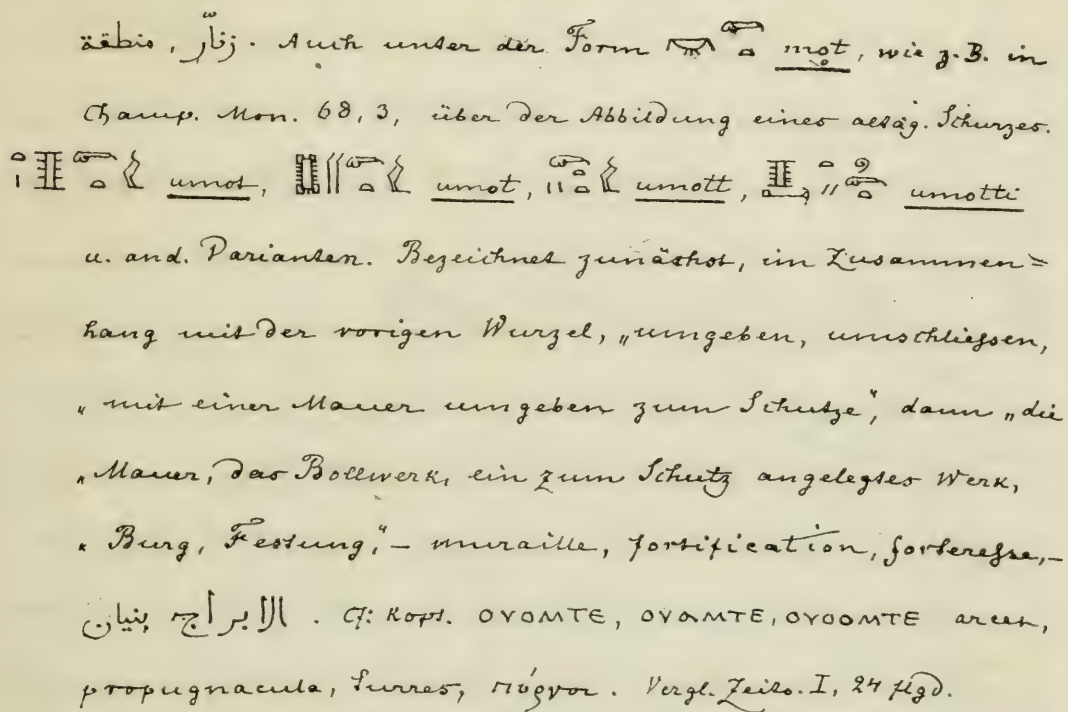 منطقة , زنّار. Auch unter der Form mot, wie z.B. in
Champ. Mon. 68, 3, über der Abbildung eines altäg. Schurzes.
umot, umot, umott, umotti
u. and. Varianten. Bezeichnet zunächst, im Zusammen=
hang mit der vorigen Wurzel, „umgeben, umschliessen,
„mit einer Mauer umgeben zum Schutze", dann „die
„Mauer, das Bollwerk, ein zum Schutz angelegtes Werk,
„Burg, Festung", – muraille, fortification, forteresse, –
الابراج بنيان . Cf: Kopt. ⲞⲨⲞⲘⲦⲈ, ⲞⲨⲀⲘⲦⲈ, ⲞⲨⲞⲞⲘⲦⲈ arces,
propugnacula, turres, πύργοι. Vergl. Zeits. I, 24 flgd.